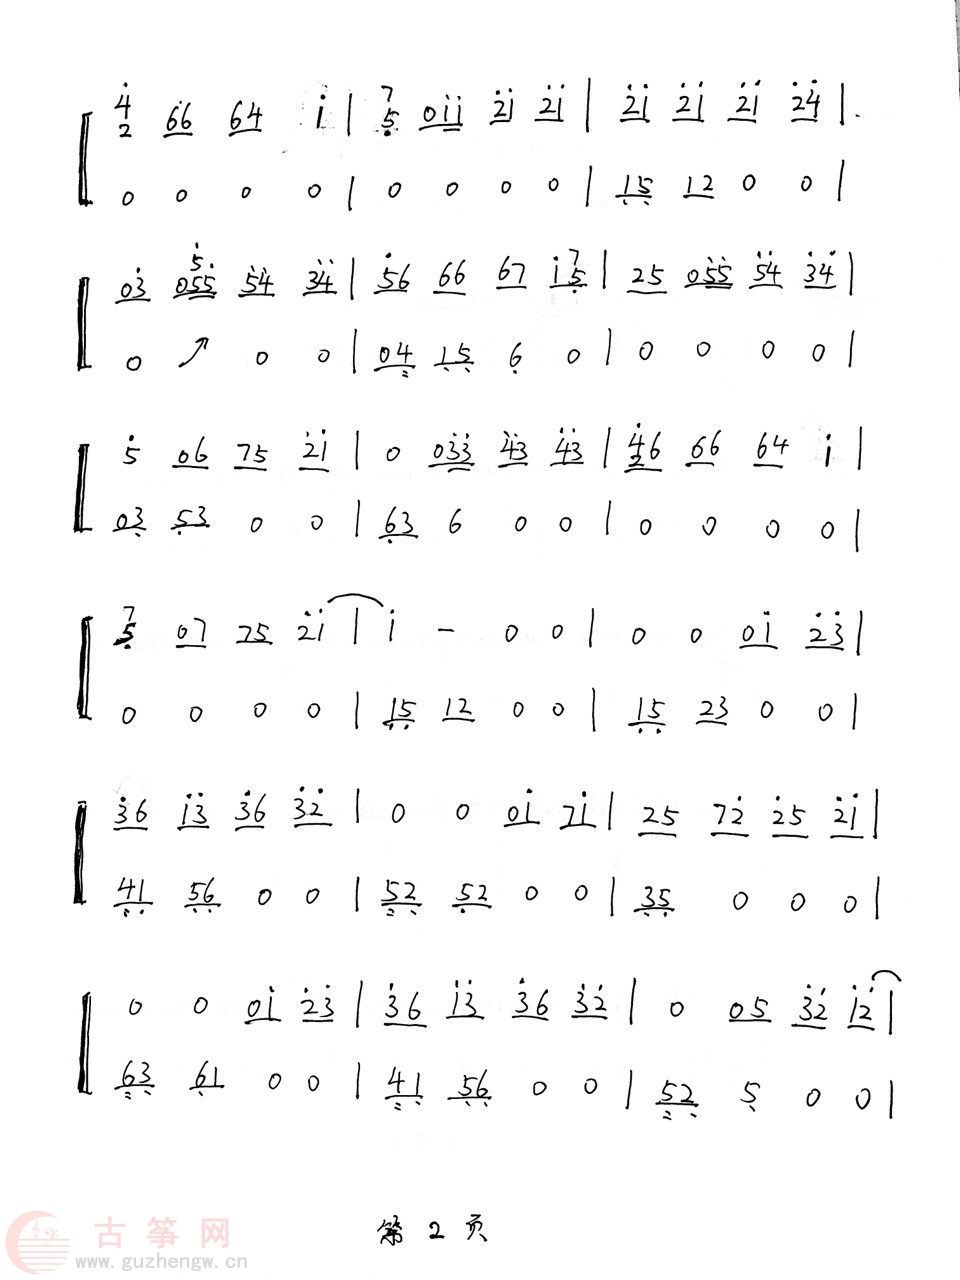 4̇2 66 64 1̇ | 75̣ 01̇1̇ 2̇1̇ 2̇1̇ | 2̇1̇ 2̇1̇ 2̇1̇ 2̇4̇ |
0 0 0 0 | 0 0 0 0 | 1̣5̣ 12 0 0 |
03̇ 5̇05̇5̇ 5̇4̇ 3̇4̇ | 5̇6 66 67 1̇75̣ | 25 05̇5̇ 5̇4̇ 3̇4̇ |
0 ↗ 0 0 | 04 15̣ 6̣ 0 | 0 0 0 0 |
5̇ 06 75 2̇1̇ | 0 03̇3̇ 4̇3̇ 4̇3̇ | 4̇26 66 64 1̇ |
03̣ 5̣3 0 0 | 6̣3 6 0 0 | 0 0 0 0 |
75̣ 07 75 2̇1̇ | 1̇ – 0 0 | 0 0 01̇ 2̇3̇ |
0 0 0 0 | 1̣5̣ 12 0 0 | 1̣5̣ 23 0 0 |
3̇6 1̇3̇ 3̇6 3̇2̇ | 0 0 01̇ 71̇ | 25 72̇ 2̇5 2̇1̇ |
41 5̣6̣ 0 0 | 52 5̣2 0 0 | 3̣5̣ 0 0 0 |
0 0 01̇ 2̇3̇ | 3̇6 1̇3̇ 3̇6 3̇2̇ | 0 05 3̇2̇ 1̇2̇ |
63 6̣1 0 0 | 41 5̣6̣ 0 0 | 52 5̣ 0 0 |
第 2 页
古筝网
www.guzhengw.cn